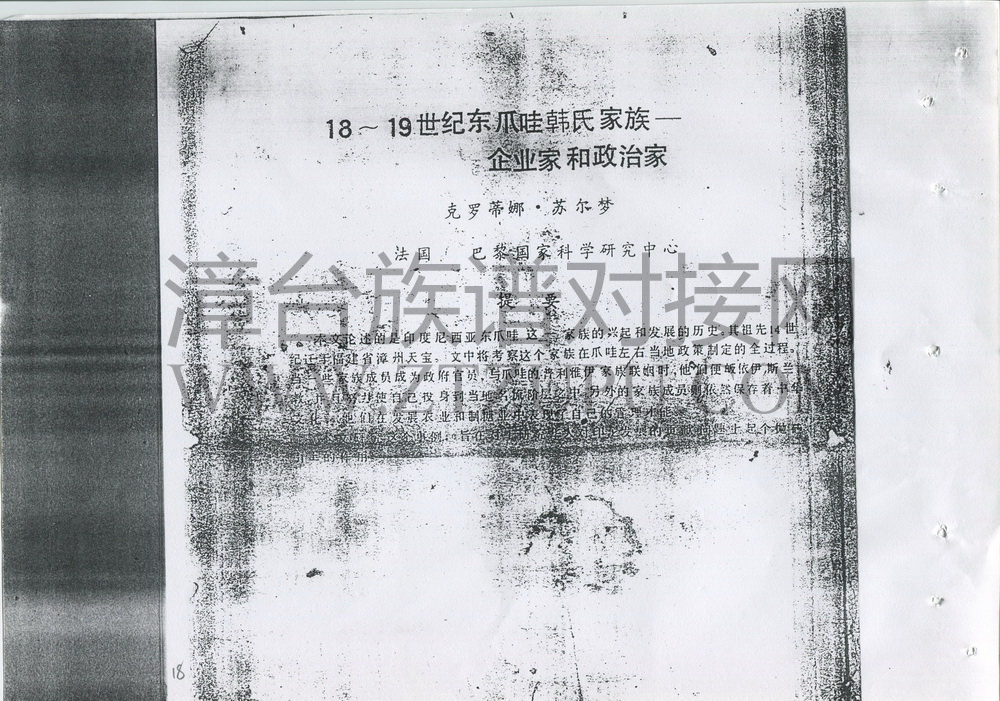 18～19世纪东爪哇韩氏家族—
企业家和政治家
克罗蒂娜·苏尔梦
法国 巴黎国家科学研究中心
提 要
本文论述的是印度尼西亚东爪哇这一家族的兴起和发展的历史。其祖先14世
纪迁于福建省漳州天宝。文中将考察这个家族在爪哇左右当地政策制定的全过程。
当一些家族成员成为政府官员，与爪哇的普利雅伊家族联姻时，他们便皈依伊斯兰
教，并且努力使自己投身到当地名流阶层之中，另外的家族成员则依然保存着中华
文化，他们在发展农业和制糖业中表现了自己的管理才能。
漳台族谱对接网
18